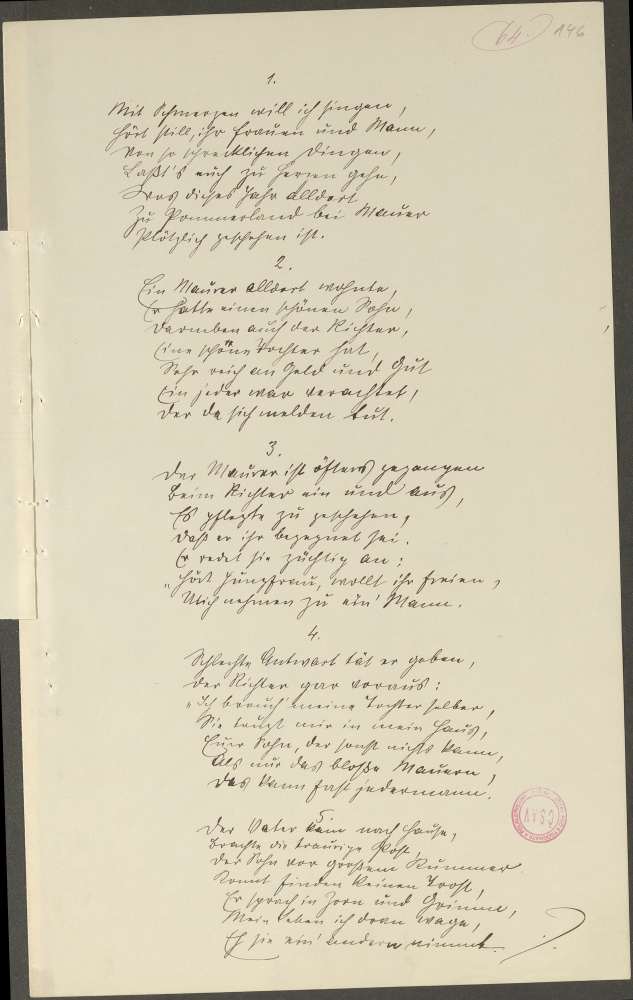 64. 146
1.
Mit Schmerzen will ich singen,
Hört still, ihr Frauen und Mann,
Von so schrecklichen Dingen,
Laßt's euch zu Herzen gehn,
Was dieses Jahr alldort
Zu Pommerland bei Mauer
Plötzlich geschehen ist.
2.
Ein Maurer alldort wohnte,
Er hatte einen schönen Sohn,
Darneben auch der Richter,
Eine schöne Tochter hat,
Sehr reich an Geld und Gut
Ein jeder war verachtet,
Der da sich melden tut.
3.
Der Maurer ist öfters gegangen
Beim Richter ein und aus,
Es pflegte zu geschehen,
Daß er ihr begegnet sei.
Er redet sie züchtig an:
„Hört Jungfrau, wollt ihr freien,
Mich nehmen zu ein' Mann.
4.
Schlechte Antwort tät er geben,
Der Richter gar voraus:
„Ich brauch' meine Tochter selber,
Sie taugt mir in mein Haus,
Euer Sohn, der sonst nichts kann,
Als nur das bloße Mauern,
Das kann fast jedermann.
5.
Der Vater kam nach Hause,
Brachte die traurige Post,
Der Sohn vor großem Kummer
Konnt finden keinen Trost,
Er sprach in Zorn und Grimme,
Mein Leben ich dran wage,
Eh sie ein' andern nimmt.